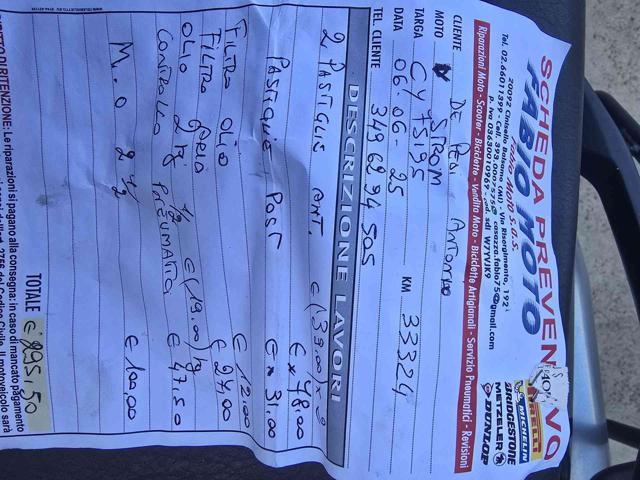 SCHEDA PREVENTIVO
FABIO MOTO
Fabio Moto S.a.s.
20092 Cinisello Balsamo (MI) - Via Risorgimento, 192
Tel. 02.66011399 - Cell.
casazza.fabio75@gmail.com
P. Iva 03683010969 - cod. sdi W7YVJK9
PIRELLI
MICHELIN
BRIDGESTONE
METZELER
DUNLOP
Riparazioni Moto - Scooter - Biciclette - Vendita Moto - Biciclette Artigianali - Servizio Pneumatici - Revisioni
CLIENTE DE Antonino
MOTO V STROM
TARGA CY 45195 KM 33324
DATA 06-06-25
TEL CLIENTE 349 6294 505
DESCRIZIONE LAVORI
2 PASTIGLIE ANT. € 48.00
PASTIGLIE POST € 31.00
FILTRO OLIO € 12.00
FILTRO ARIA € 27,00
OLIO 2 Kg 1/2 € (19.00/kg) € 47.50
CONTROLLO PNEUMATICI
M.O 2 1/2 € 100,00
TOTALE € 295,50
DIRITTO DI RITENZIONE: Le riparazioni si pagano alla consegna: in caso di mancato pagamento